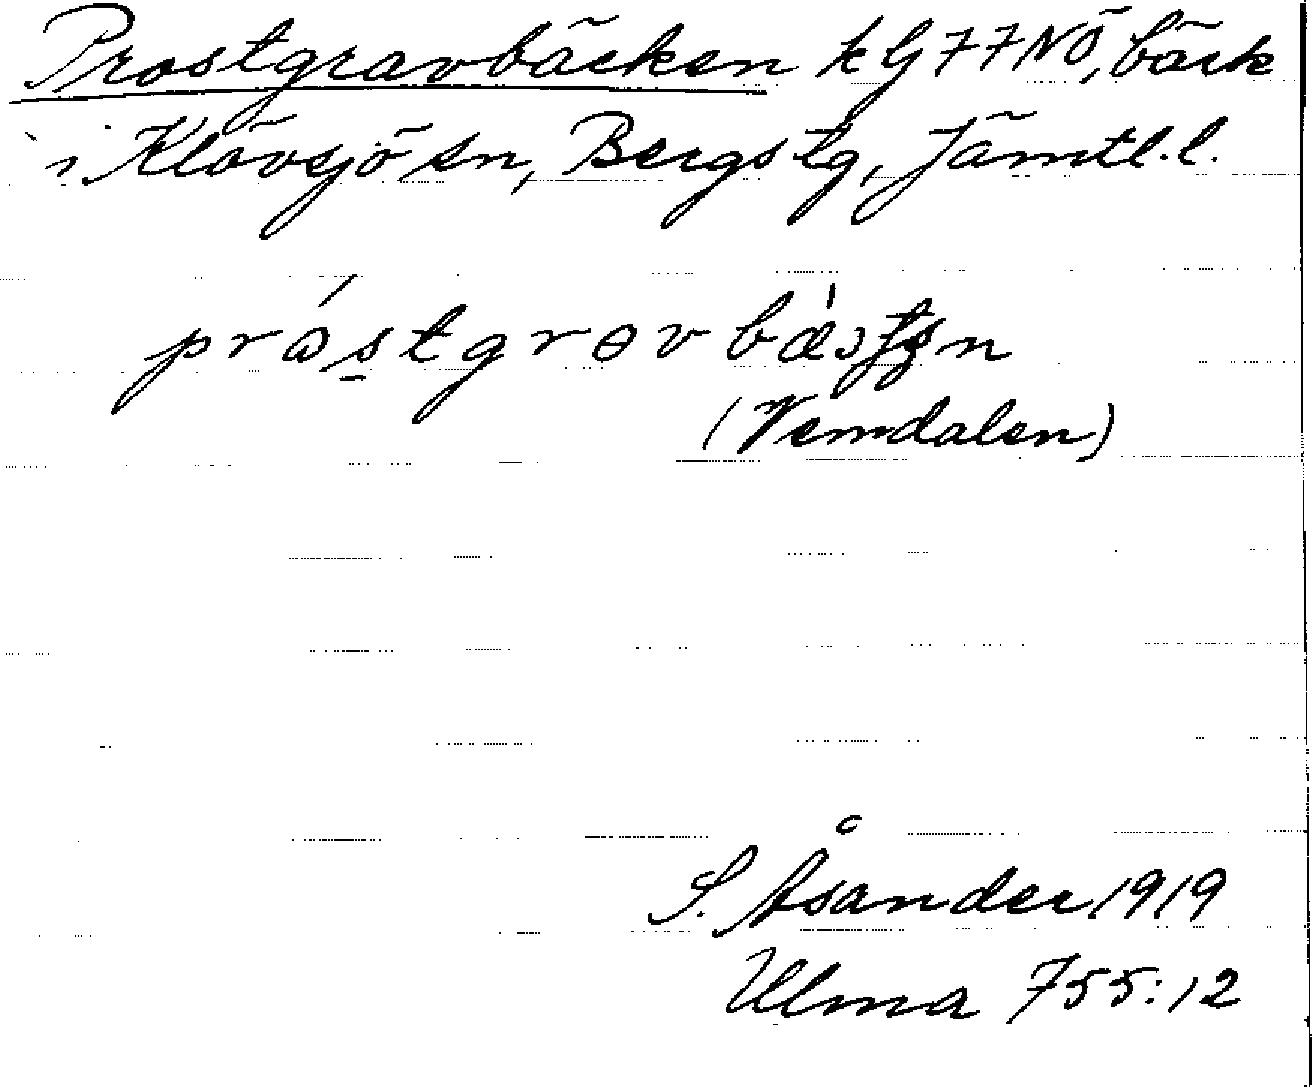 Prostgravbäcken kG77NÖ, bäck
i Klövsjö sn, Bergs tg, Jämtl.l.
(Vemdalen)
S. Åsander 1919
Ulma 755:12